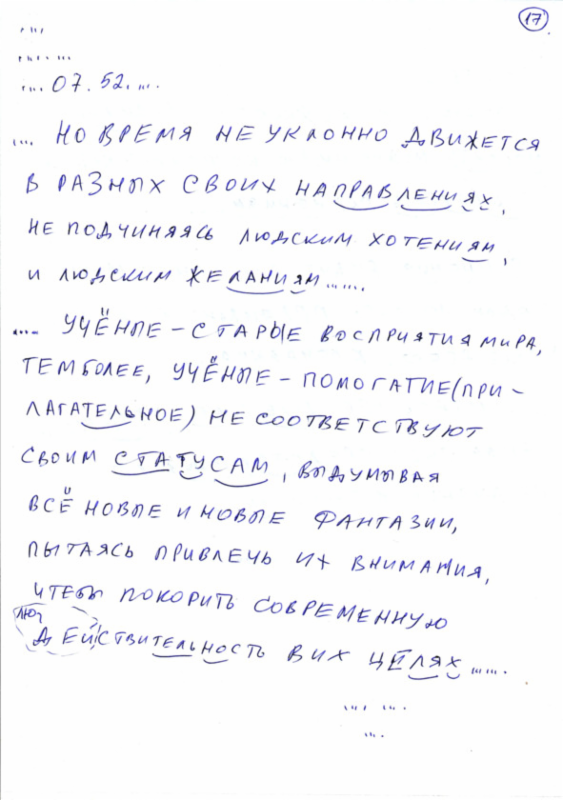 17
....
.... ...
.... 07.52. ....
.... НО ВРЕМЯ НЕ УКЛОННО ДВИЖЕТСЯ
В РАЗНЫХ СВОИХ НАПРАВЛЕНИЯХ,
НЕ ПОДЧИНЯЯСЬ ЛЮДСКИМ ХОТЕНИЯМ,
И ЛЮДСКИМ ЖЕЛАНИЯМ......
.... УЧЁНЫЕ – СТАРЫЕ ВОСПРИЯТИЯ МИРА,
ТЕМБОЛЕЕ, УЧЁНЫЕ – ПОМОГАТИЕ (ПРИ –
ЛАГАТЕЛЬНОЕ) НЕ СООТВЕТСТВУЮТ
СВОИМ СТАТУСАМ, ВЫДУМЫВАЯ
ВСЁ НОВЫЕ И НОВЫЕ ФАНТАЗИИ,
ПЫТАЯСЬ ПРИВЛЕЧЬ ИХ ВНИМАНИЯ,
ЧТОБЫ ПОКОРИТЬ СОВРЕМЕННУЮ
ЛЮ
ДЕЙСТВИТЕЛЬНОСТЬ В ИХ ЦЕЛЯХ .....
.... ....
...